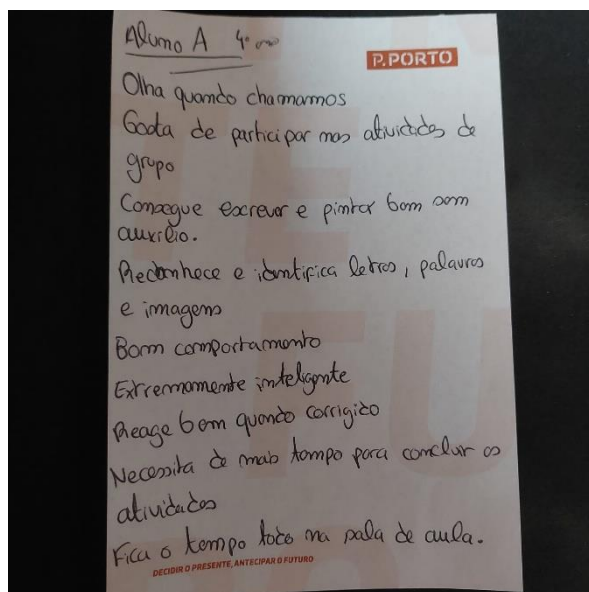 Aluno A 4º ano
P.PORTO
Olha quando chamamos
Gosta de participar nas atividades de
grupo
Consegue escrever e pintar bem sem
auxílio.
Reconhece e identifica letras, palavras
e imagens
Bom comportamento
Extremamente inteligente
Reage bem quando corrigido
Necessita de mais tempo para concluir as
atividades
Fica o tempo todo na sala de aula.
DECIDIR O PRESENTE, ANTECIPAR O FUTURO